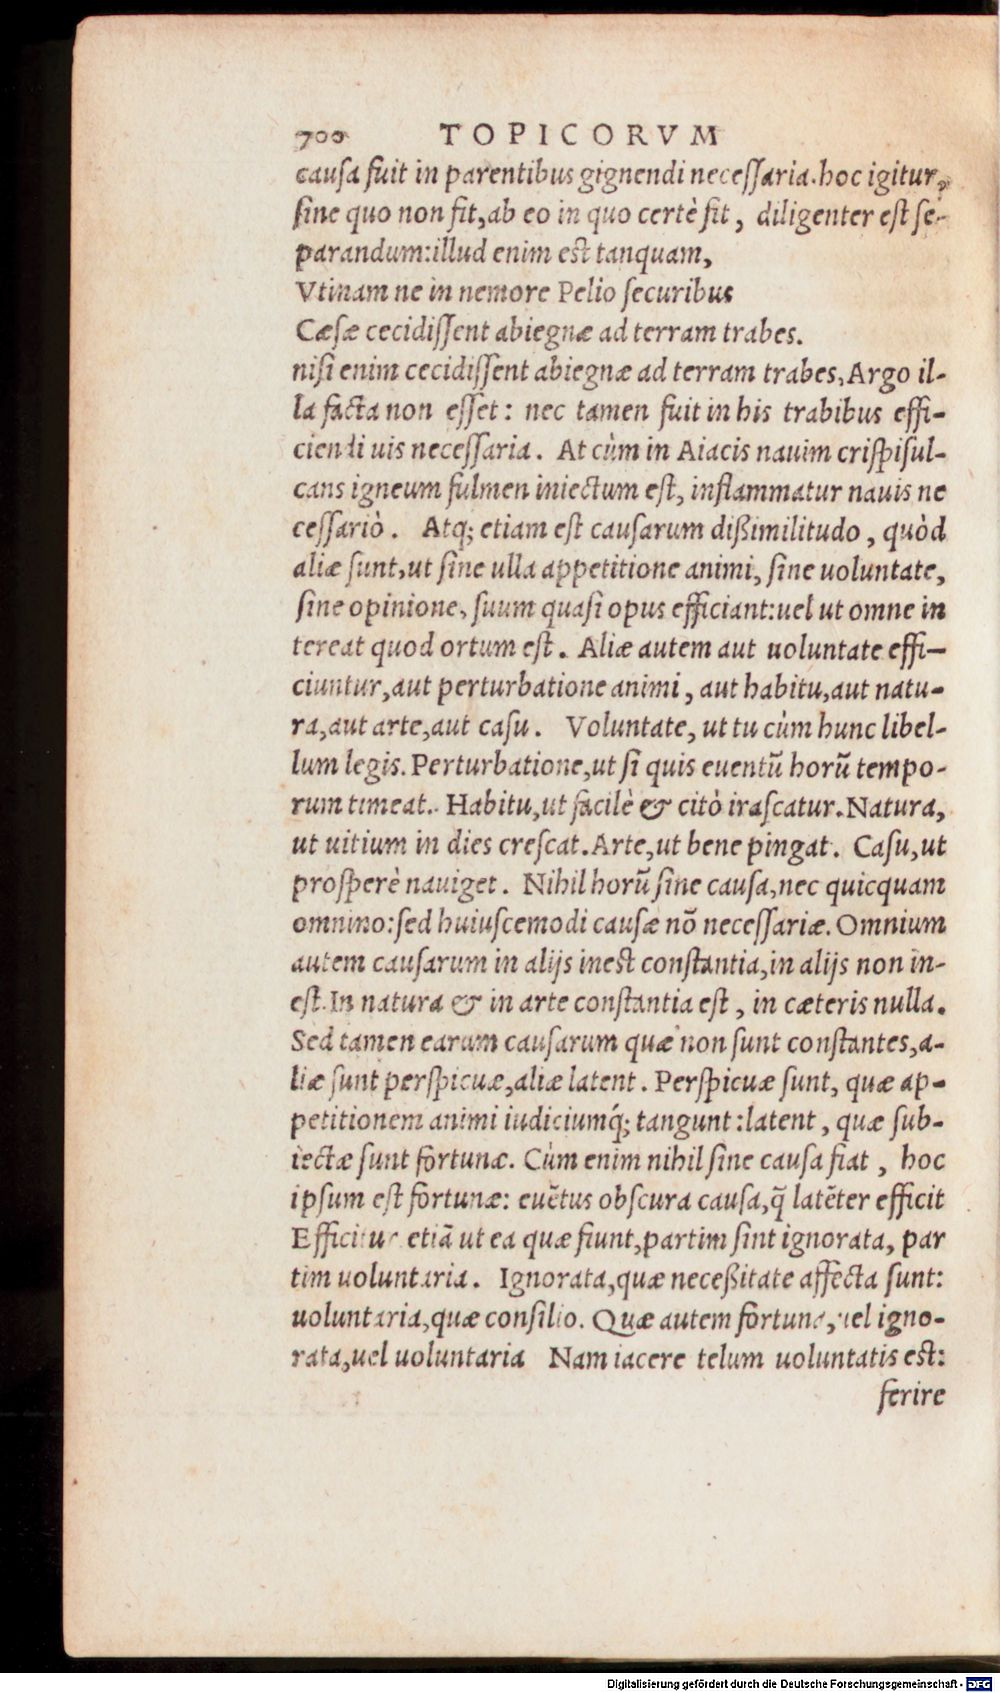 700 TOPICORVM
causa fuit in parentibus gignendi necessaria. hoc igitur,
sine quo non fit, ab eo in quo certè fit, diligenter est se-
parandum: illud enim est tanquam,
Vtinam ne in nemore Pelio securibus
Cæsæ cecidissent abiegnæ ad terram trabes.
nisi enim cecidissent abiegnæ ad terram trabes, Argo il-
la facta non esset: nec tamen fuit in his trabibus effi-
ciendi uis necessaria. At cùm in Aiacis nauim crispisul-
cans igneum fulmen iniectum est, inflammatur nauis ne
cessariò. Atq; etiam est causarum dißimilitudo, quòd
aliæ sunt, ut sine ulla appetitione animi, sine uoluntate,
sine opinione, suum quasi opus efficiant: uel ut omne in
tereat quod ortum est. Aliæ autem aut uoluntate effi-
ciuntur, aut perturbatione animi, aut habitu, aut natu-
ra, aut arte, aut casu. Voluntate, ut tu cùm hunc libel-
lum legis. Perturbatione, ut si quis euentũ horũ tempo-
rum timeat. Habitu, ut facilè & citò irascatur. Natura,
ut uitium in dies crescat. Arte, ut bene pingat. Casu, ut
prosperè nauiget. Nihil horũ sine causa, nec quicquam
omnino: sed huiuscemodi causæ nõ necessariæ. Omnium
autem causarum in alijs inest constantia, in alijs non in-
est. In natura & in arte constantia est, in cæteris nulla.
Sed tamen earum causarum quæ non sunt constantes, a-
liæ sunt perspicuæ, aliæ latent. Perspicuæ sunt, quæ ap-
petitionem animi iudiciumq́; tangunt: latent, quæ sub-
iectæ sunt fortunæ. Cùm enim nihil sine causa fiat, hoc
ipsum est fortunæ: euẽtus obscura causa, q̃ latẽter efficit
Efficitur etiã ut ea quæ fiunt, partim sint ignorata, par
tim uoluntaria. Ignorata, quæ neceßitate affecta sunt:
uoluntaria, quæ consilio. Quæ autem fortuna, uel igno-
rata, uel uoluntaria Nam iacere telum uoluntatis est:
ferire
Digitalisierung gefördert durch die Deutsche Forschungsgemeinschaft - DFG